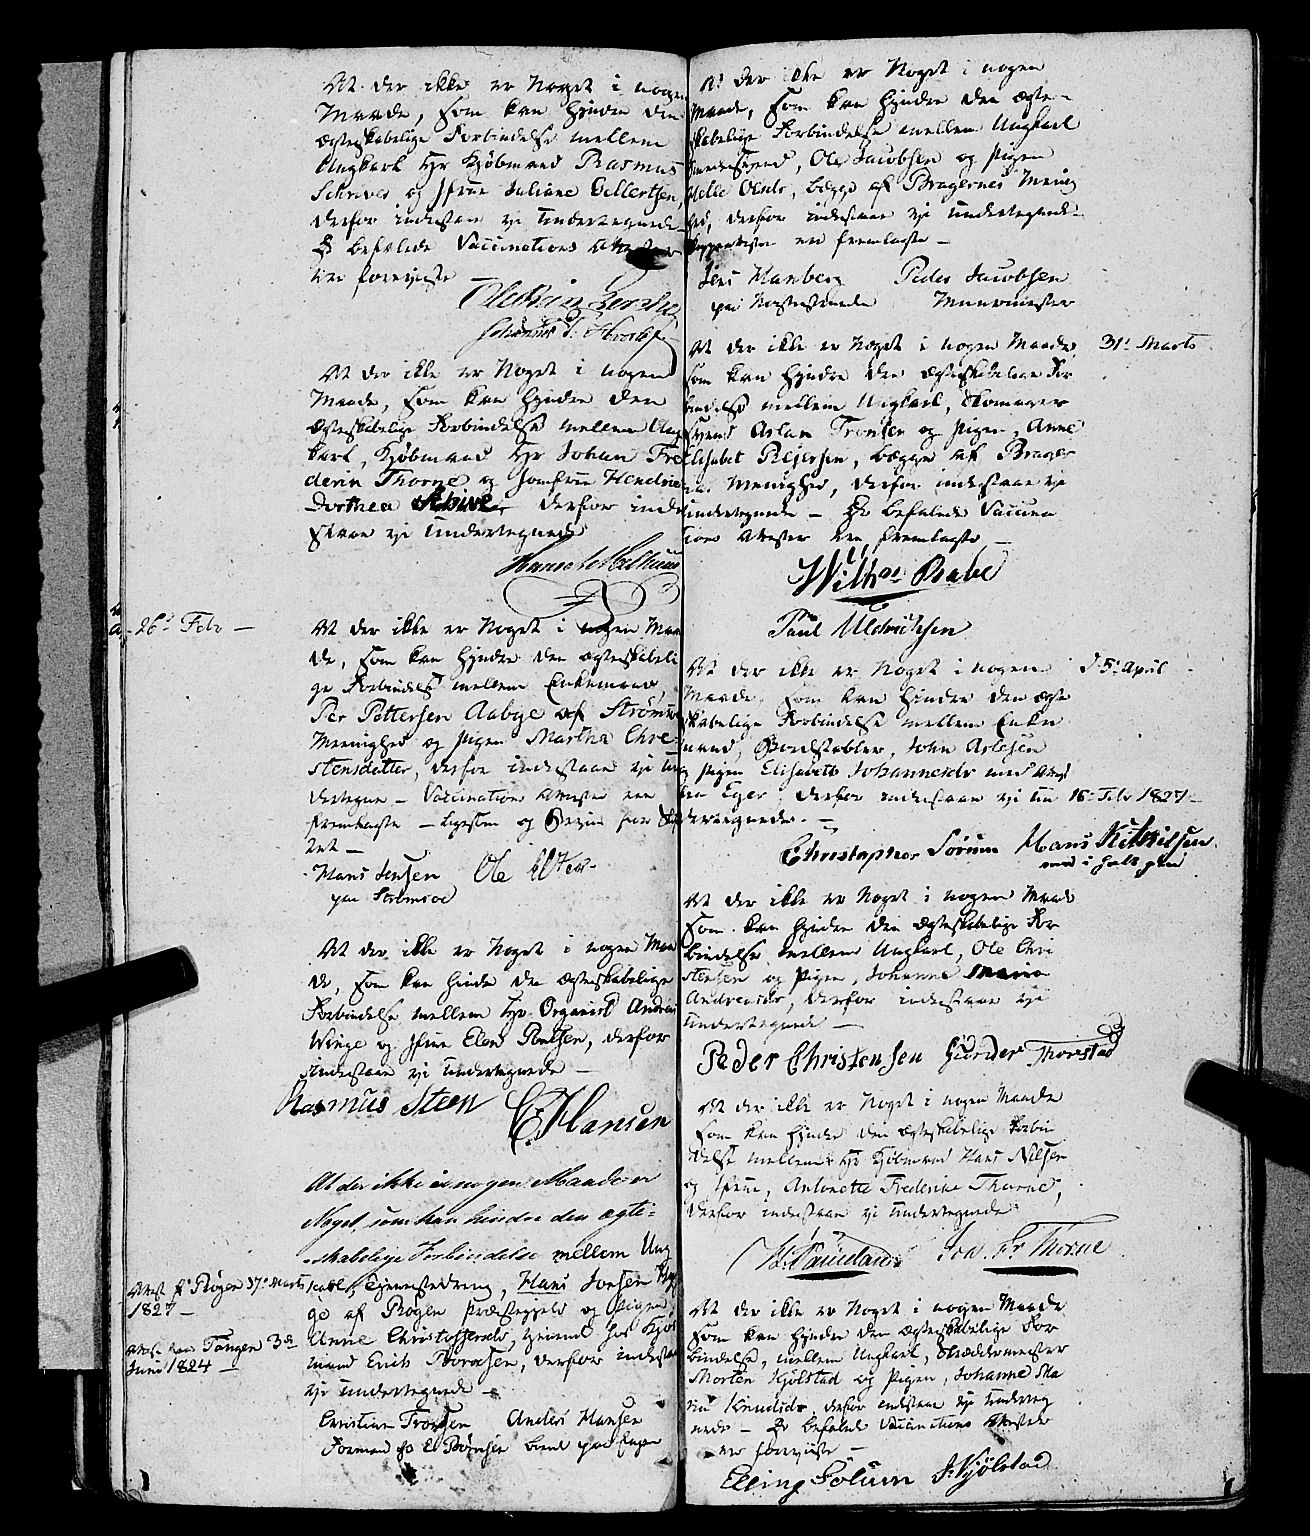 At der ikke er Noget i nogen
Maade, som kan hindre den
ægteskabelige Forbindelse mellem
Ungkarl Hr Kjøbmand Rasmus
Schriver og Jfrue Juliane Gellertsen,
derfor indestaae vi Undertegnede
De befalede Vaccinations Attester
ere foreviste
Johannes
At der ikke er Noget i nogen
Maade, som kan hindre den
ægteskabelige Forbindelse mellem Ung
karl, Kjøbmand Hr Johan Fre
derik Thorne og Jomfrue Hendrik
Dorthea derfor inde
staae vi Undertegnede
26d Febr —
At der ikke er Noget i nogen Maa
de, som kan hindre den ægteskabeli
ge Forbindelse mellem Enkemand,
Per Pettersen Aabye af Strømsøe
Menighed og Pigen Martha Chri
stensdatter, derfor indestaae vi Un
dertegne — Vaccinations Attester ere
fremlagte — og for
tet —
Hans Jensen Ole
paa Strømsøe
At der ikke er Noget i nogen Maa
de, som kan hindre den ægteskabelige
Forbindelse mellem Hr Organist Andreas
Winge og Jfrue Elen Poulsen, derfor
indestaae vi Undertegnede —
Rasmus Steen E. Hansen
At der ikke i nogen Maade er
Noget, som kan hindre den ægte-
skabelige Forbindelse mellem Ung
Attest fra Røgen 37d Marts
1827 —
karl, Tjenestedreng, Hans Jonsen
ge af Røgen Præstegjeld og Pigen,
Attest fra Tangen 3d
Juni 1824 —
Anne Christophersdr, tjenende hos Kjøb
mand Erich Børresen, derfor indestaae
vi Undertegnede —
Christian Tronsen Anders Hansen
Formand hos E. Børresen boende paa Engen
At der ikke er Noget i nogen
Maade, som kan hindre den ægte-
skabelige Forbindelse mellem Ungkarl
Ole Jacobsen og Pigen
Helle Olsdr, begge af Bragernes Menig
hed, derfor indestaae vi Undertegnede
ere fremlagte —
Jens Manberg Peder Jacobsen
Muurmester
31d Marts
At der ikke er Noget i nogen Maade,
som kan hindre den ægteskabelige For
bindelse mellem Ungkarl, Skomager
svend Aslan Tronsen og Pigen, Anne
Elisabet Reijersen, begge af Brager
nes Menighed, derfor indestaae vi
Undertegnede — De befalede Vaccina
tions Attester ere fremlagte —
Wilh. Rabe
Paul Uldrichsen
d 5d April
At der ikke er Noget i nogen
Maade, som kan hindre den ægte
skabelige Forbindelse mellem Enke
mand, John Aslesen
og Pigen Elisabeth Johannesdr med Attest
fra Eger, derfor indestaae vi Un 16 Febr 1827 —
dertegnede. —
Christopher Sørum Hans Kittilsen
med i holt pen
At der ikke er Noget i nogen Maade
som kan hindre den ægteskabelige For
bindelse mellem Ungkarl, Ole Chri
stensen og Pigen, Johanne Marie
Andreasdr, derfor indestaae vi
Undertegnede —
Peder Christensen Gunder Thorstad
At der ikke er Noget i nogen Maade
som kan hindre den ægteskabelige Forbin
delse mellem Hr Kjøbmand Hans Nilsen
og Jfrue, Antonette Frederike Thorne,
derfor indestaae vi Undertegnede
Joh. Fr. Thorne
At der ikke er Noget i nogen Maade
som kan hindre den ægteskabelige For
bindelse, mellem Ungkarl, Skræddermester
Morten Kjølstad og Pigen, Johanne Ma
ria Knudsdr, derfor indestaae vi Underteg
nede — De befalede Vaccinations Attester
ere foreviste —
Elling Solum J. Kjølstad